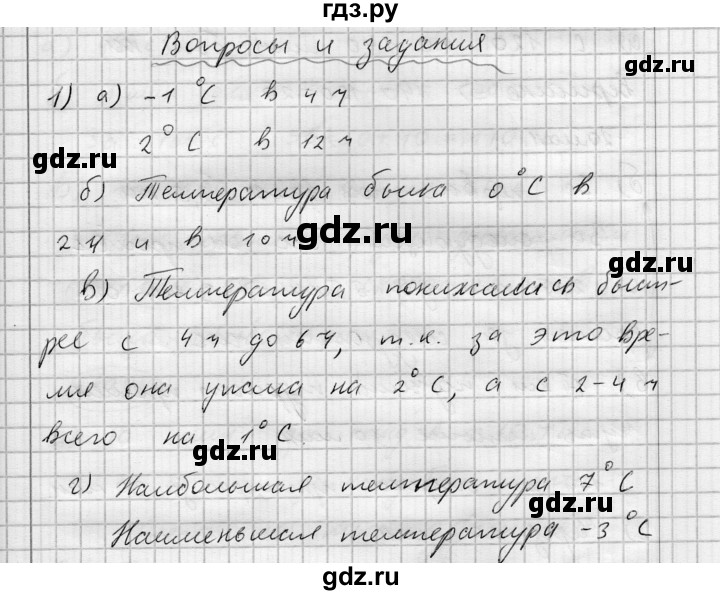 гдз.ру
Вопросы и задания
1) а) -1°С в 4 ч
2°С в 12 ч
gdz.ru
gdz.ru
б) Температура была 0°С в
2 ч и в 10 ч
gdz.ru
gdz.ru
в) Температура понижалась быст-
рее с 4 ч до 6 ч, т.к. за это вре-
мя она упала на 2°С, а с 2-4 ч
всего на 1°С
gdz.ru
г) Наибольшая температура 7°С
gdz.ru
Наименьшая температура -3°С
gdz.ru